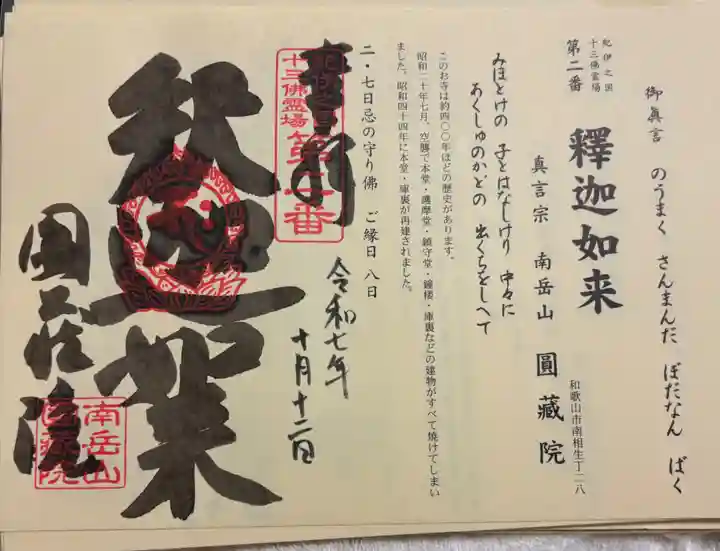 御眞言 のうまく さんまんだ ぼだなん ばく
紀伊之国
十三佛霊場
第二番
釋迦如来
和歌山市南相生丁二八
真言宗 南岳山 圓藏院
みほとけの 子とはなしけり 中々に
あくしゅのかどの 出くちをしへて
このお寺は約四〇〇年ほどの歴史があります。
昭和二十年七月、空襲で本堂・護摩堂・鎮守堂・鐘楼・庫裏などの建物がすべて焼けてしまい
ました。昭和四十四年に本堂・庫裏が再建されました。
二・七日忌の守り佛 ご縁日 八日
奉拝
十三佛霊場 第二番
令和七年
十月十二日
釈迦如来
圓蔵院
南岳山